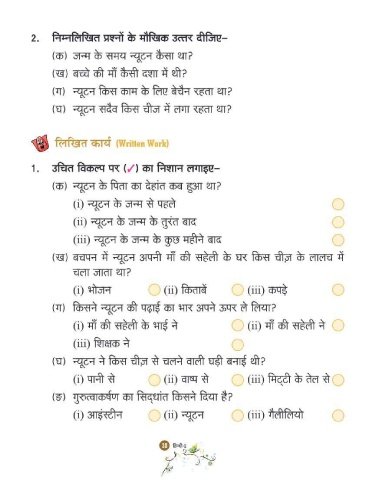 2. निम्नलिखित प्रश्नों के मौखिक उत्तर दीजिए–
(क) जन्म के समय न्यूटन कैसा था?
(ख) बच्चे की माँ कैसी दशा में थी?
(ग) न्यूटन किस काम के लिए बेचैन रहता था?
(घ) न्यूटन सदैव किस चीज़ में लगा रहता था?
लिखित कार्य (Written Work)
1. उचित विकल्प पर (✓) का निशान लगाइए–
(क) न्यूटन के पिता का देहांत कब हुआ था?
(i) न्यूटन के जन्म से पहले
(ii) न्यूटन के जन्म के तुरंत बाद
(iii) न्यूटन के जन्म के कुछ महीने बाद
(ख) बचपन में न्यूटन अपनी माँ की सहेली के घर किस चीज़ के लालच में
चला जाता था?
(i) भोजन (ii) किताबें (iii) कपड़े
(ग) किसने न्यूटन की पढ़ाई का भार अपने ऊपर ले लिया?
(i) माँ की सहेली के भाई ने (ii) माँ की सहेली ने
(iii) शिक्षक ने
(घ) न्यूटन ने किस चीज़ से चलने वाली घड़ी बनाई थी?
(i) पानी से (ii) वाष्प से (iii) मिट्टी के तेल से
(ङ) गुरुत्वाकर्षण का सिद्धांत किसने दिया है?
(i) आइंस्टीन (ii) न्यूटन (iii) गैलीलियो
हिन्दी